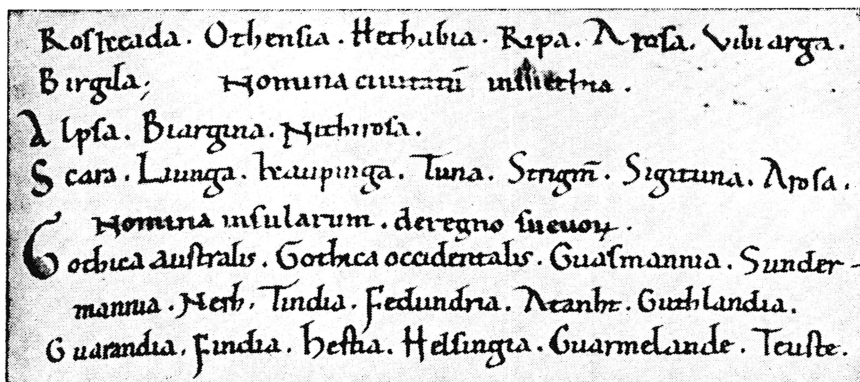 Rosheada. Othensia. Hethabia. Ripa. Arosa. Vibiarga.
Birgila; Nomina ciuitatū
Alpsa. Biargina. Nithirosa.
Scara. Liunga. kaupinga. Tuna. Strigm̄. Sigituna. Arosa.
Nomina insularum. deregno sueuoꝝ.
Gothica australis. Gothica occidentalis. Guasmannia. Sunder-
mannia. Nerh. Tindia. Fedundria. Atanht. Guthlandia.
Guarandia. Findia. hestia. Helsingia. Guarmelande. Teuste.